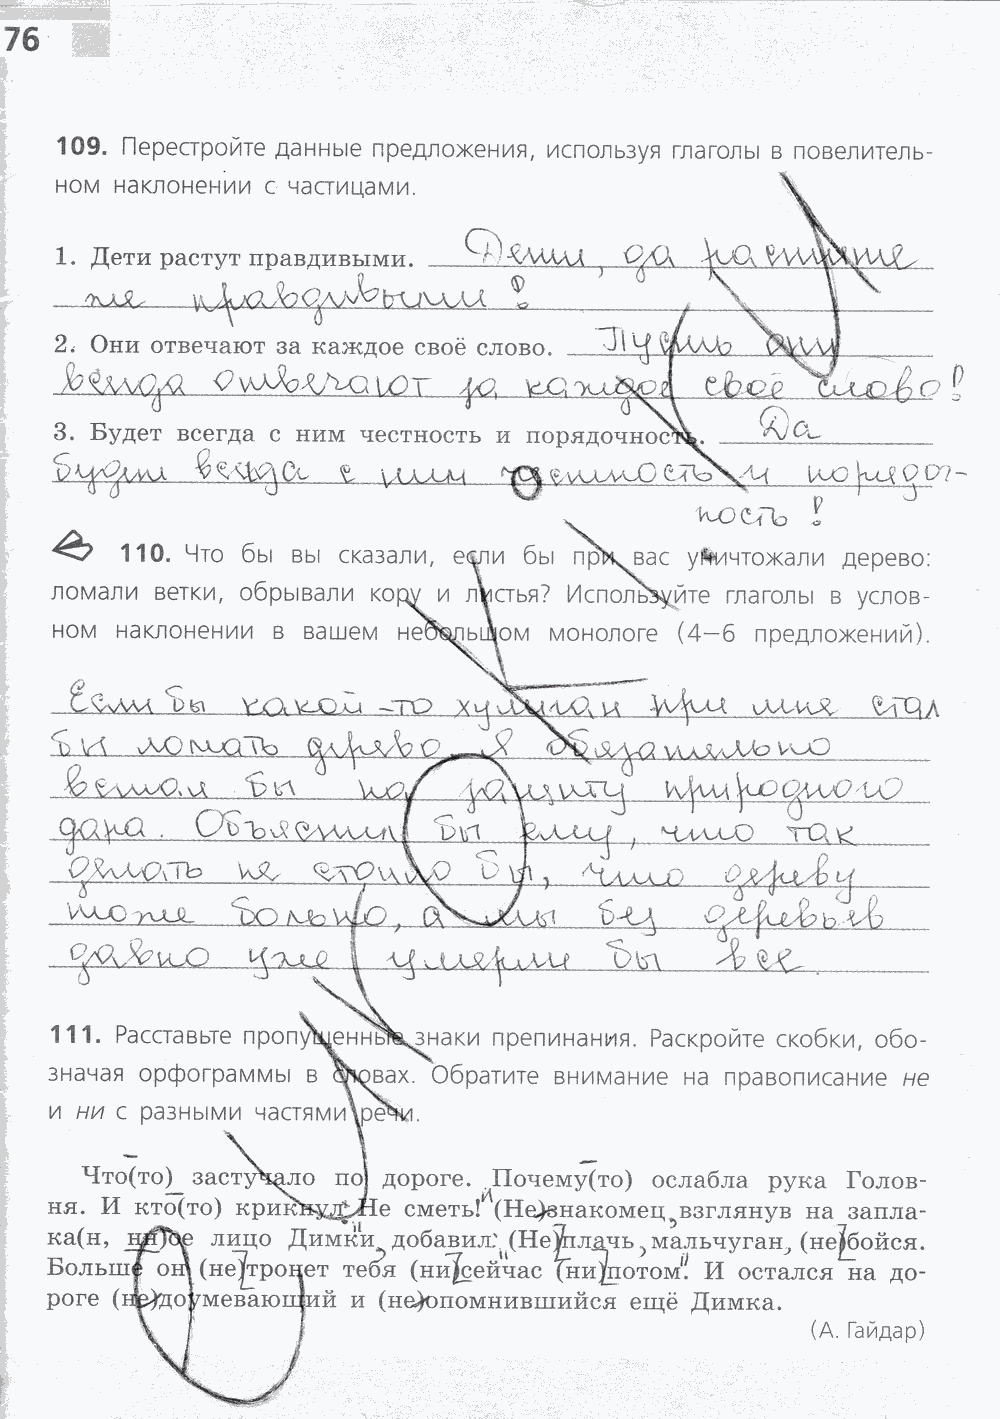 76
109. Перестройте данные предложения, используя глаголы в повелитель-
ном наклонении с частицами.
1. Дети растут правдивыми. Дети, да растите
же правдивыми!
2. Они отвечают за каждое своё слово. Пусть они
всегда отвечают за каждое своё слово!
3. Будет всегда с ним честность и порядочность. Да
будет всегда с ним честность и порядоч-
ность!
110. Что бы вы сказали, если бы при вас уничтожали дерево:
ломали ветки, обрывали кору и листья? Используйте глаголы в услов-
ном наклонении в вашем небольшом монологе (4–6 предложений).
Если бы какой-то хулиган при мне стал
бы ломать дерево, я обязательно
встал бы на защиту природного
дара. Объяснил бы ему, что так
делать не стоило бы, что дереву
тоже больно, а мы без деревьев
давно уже умерли бы все.
111. Расставьте пропущенные знаки препинания. Раскройте скобки, обо-
значая орфограммы в словах. Обратите внимание на правописание не
и ни с разными частями речи.
Что(то) застучало по дороге. Почему(то) ослабла рука Голов-
ня. И кто(то) крикнул: "Не сметь!" (Не)знакомец, взглянув на запла-
ка(н, нн)ое лицо Димки, добавил: "(Не)плачь, мальчуган, (не)бойся.
Больше он (не)тронет тебя (ни)сейчас (ни)потом". И остался на до-
роге (не)доумевающий и (не)опомнившийся ещё Димка.
(А. Гайдар)
ОЦЕНКИ.КИ